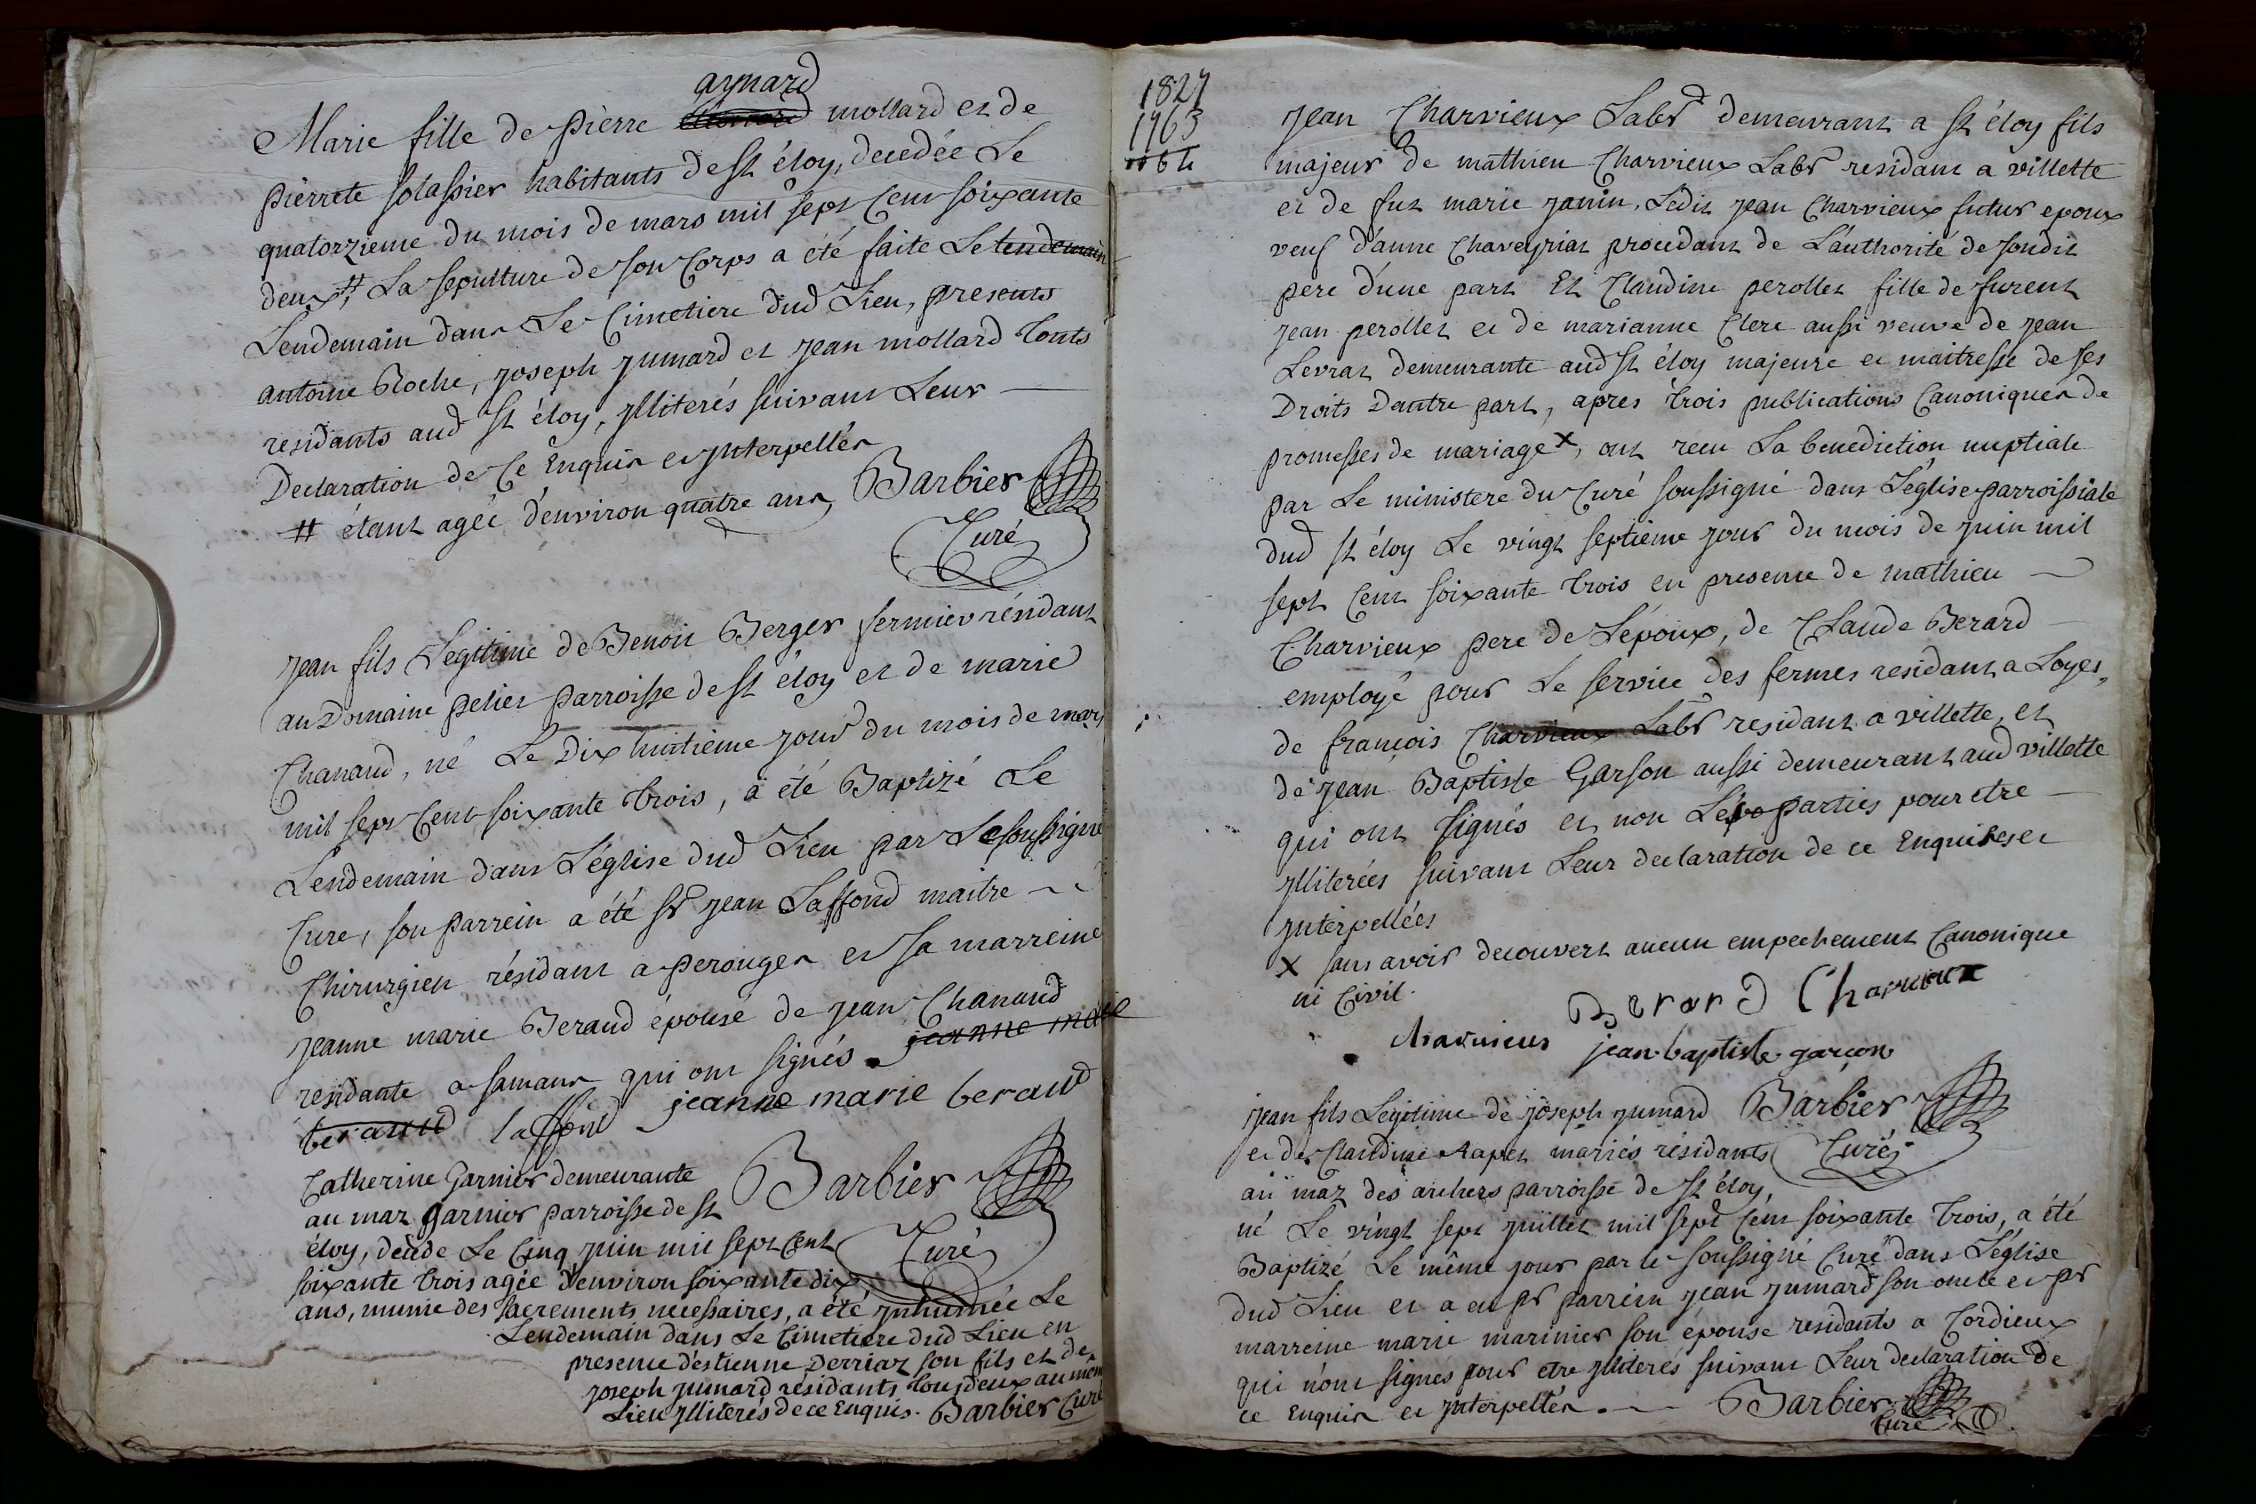 aynard
Marie fille de pierre mollard et de
pierrete solassier habitants de St éloy, decedée Le
quatorzieme du mois de mars mil sept Cent soixante
deux, # La sepulture de son Corps a été faite Le Lendemain
Lendemain dans Le Cimetiere dud Lieu, presents
antoine Roche, joseph jumard et jean mollard touts
residants aud St éloy, jlliterés suivant Leur
Declaration de Ce Enquis et jnterpellés
# étant agée d'environ quatre ans Barbier
Curé
jean fils Legitime de Benoit Berger fermier résidant
au Domaine peliet parroisse de St éloy et de marie
Chanaud, né Le Dix huitième jour du mois de mars
mil sept Cent soixante trois, a été Baptizé Le
Lendemain dans L'église dud Lieu par Le soussigné
Curé, son parrein a été Sr jean Laffond maitre
Chirurgien résidant a perouges et sa marreine
jeanne marie Beraud épouse de jean Chanaud
residante a Samans qui ont signés. jeanne marie
beraud laffond jeanne marie beraud
Barbier
Curé
Catherine Garnier demeurante
au maz garnier parroisse de St
éloy, décede Le Cinq juin mil sept Cent
soixante trois agée d'environ soixante dix
ans, munie des sacrements necessaires, a été jnhumée Le
Lendemain dans Le Cimetiere dud Lieu en
presence d'estienne Derriaz son fils et de
joseph jumard résidants tous deux au mem
Lieu jlliterés de ce Enquis. Barbier Curé
1827
1763
jean Charvieux Labr demeurant a St éloy fils
majeur de mathieu Charvieux Labr residant a villette
et de fut marie janin, Ledit jean Charvieux futur epoux
veuf d'anne Chaveyriat procedant de L'authorité de sondit
pere d'une part Et Claudine perollet fille de furent
jean perollet et de marianne Clerc aussi veuve de jean
Levrat demeurante aud St éloy majeure et maitresse de ses
Droits D'autre part, apres trois publications Canoniques de
promesses de mariage x, ont recu La benediction nuptiale
par Le ministere du Curé soussigné dans L'église parroissiale
dud St éloy Le vingt septieme jour du mois de juin mil
sept Cent soixante trois en presence de mathieu
Charvieux pere de L'époux, de Claude Berard
employé pour Le service des fermes residant a Loyes,
de francois Charvieux Labr residant a villette, et
de jean Baptiste Garson aussi demeurant aud villette
qui ont signés et non Les parties pour etre
jlliterées suivant Leur declaration de ce Enquises et
jnterpellées
x sans avoir decouvert aucun empechement Canonique
ni Civil.
Berard Charvieux
charvieux jean baptiste garcon
Barbier
Curé
jean fils Legitime de joseph jumard
et de Claudine Rapet mariés résidants
au maz des archers parroisse de St éloy,
né Le vingt sept juillet mil sept Cent soixante trois, a été
Baptizé Le même jour par le soussigné Curé dans L'église
dud Lieu et a eu pr parrein jean jumard son oncle et pr
marreine marie marinier son épouse residants a Cordieux
qui n'ont signés pour etre jlliterés suivant Leur declaration de
ce Enquis et jnterpellés. Barbier
Curé